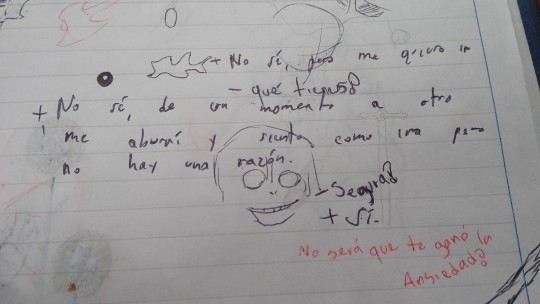 + No sé, pero me quiero ir
- qué tienes?
+ No sé, de un momento a otro
me aburrí y siento como ira pero
no hay una razón.
- Segura?
+ Sí.
No será que te ganó la
Ansiedad?